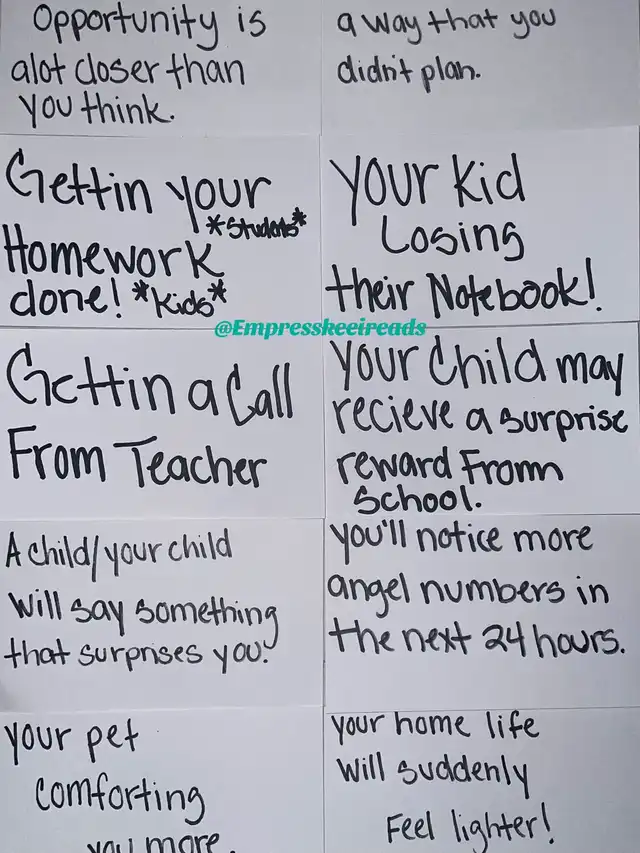 Opportunity is
alot closer than
you think.
a way that you
didn't plan.
Gettin your
*Students*
Homework
done! *Kids*
your kid
Losing
their Notebook!
@Empresskeeireads
Gettin a Call
From Teacher
your child may
recieve a surprise
reward From
School.
A child/your child
will say something
that surprises you.
you'll notice more
angel numbers in
the next 24 hours.
your pet
comforting
you more.
your home life
will suddenly
Feel lighter!